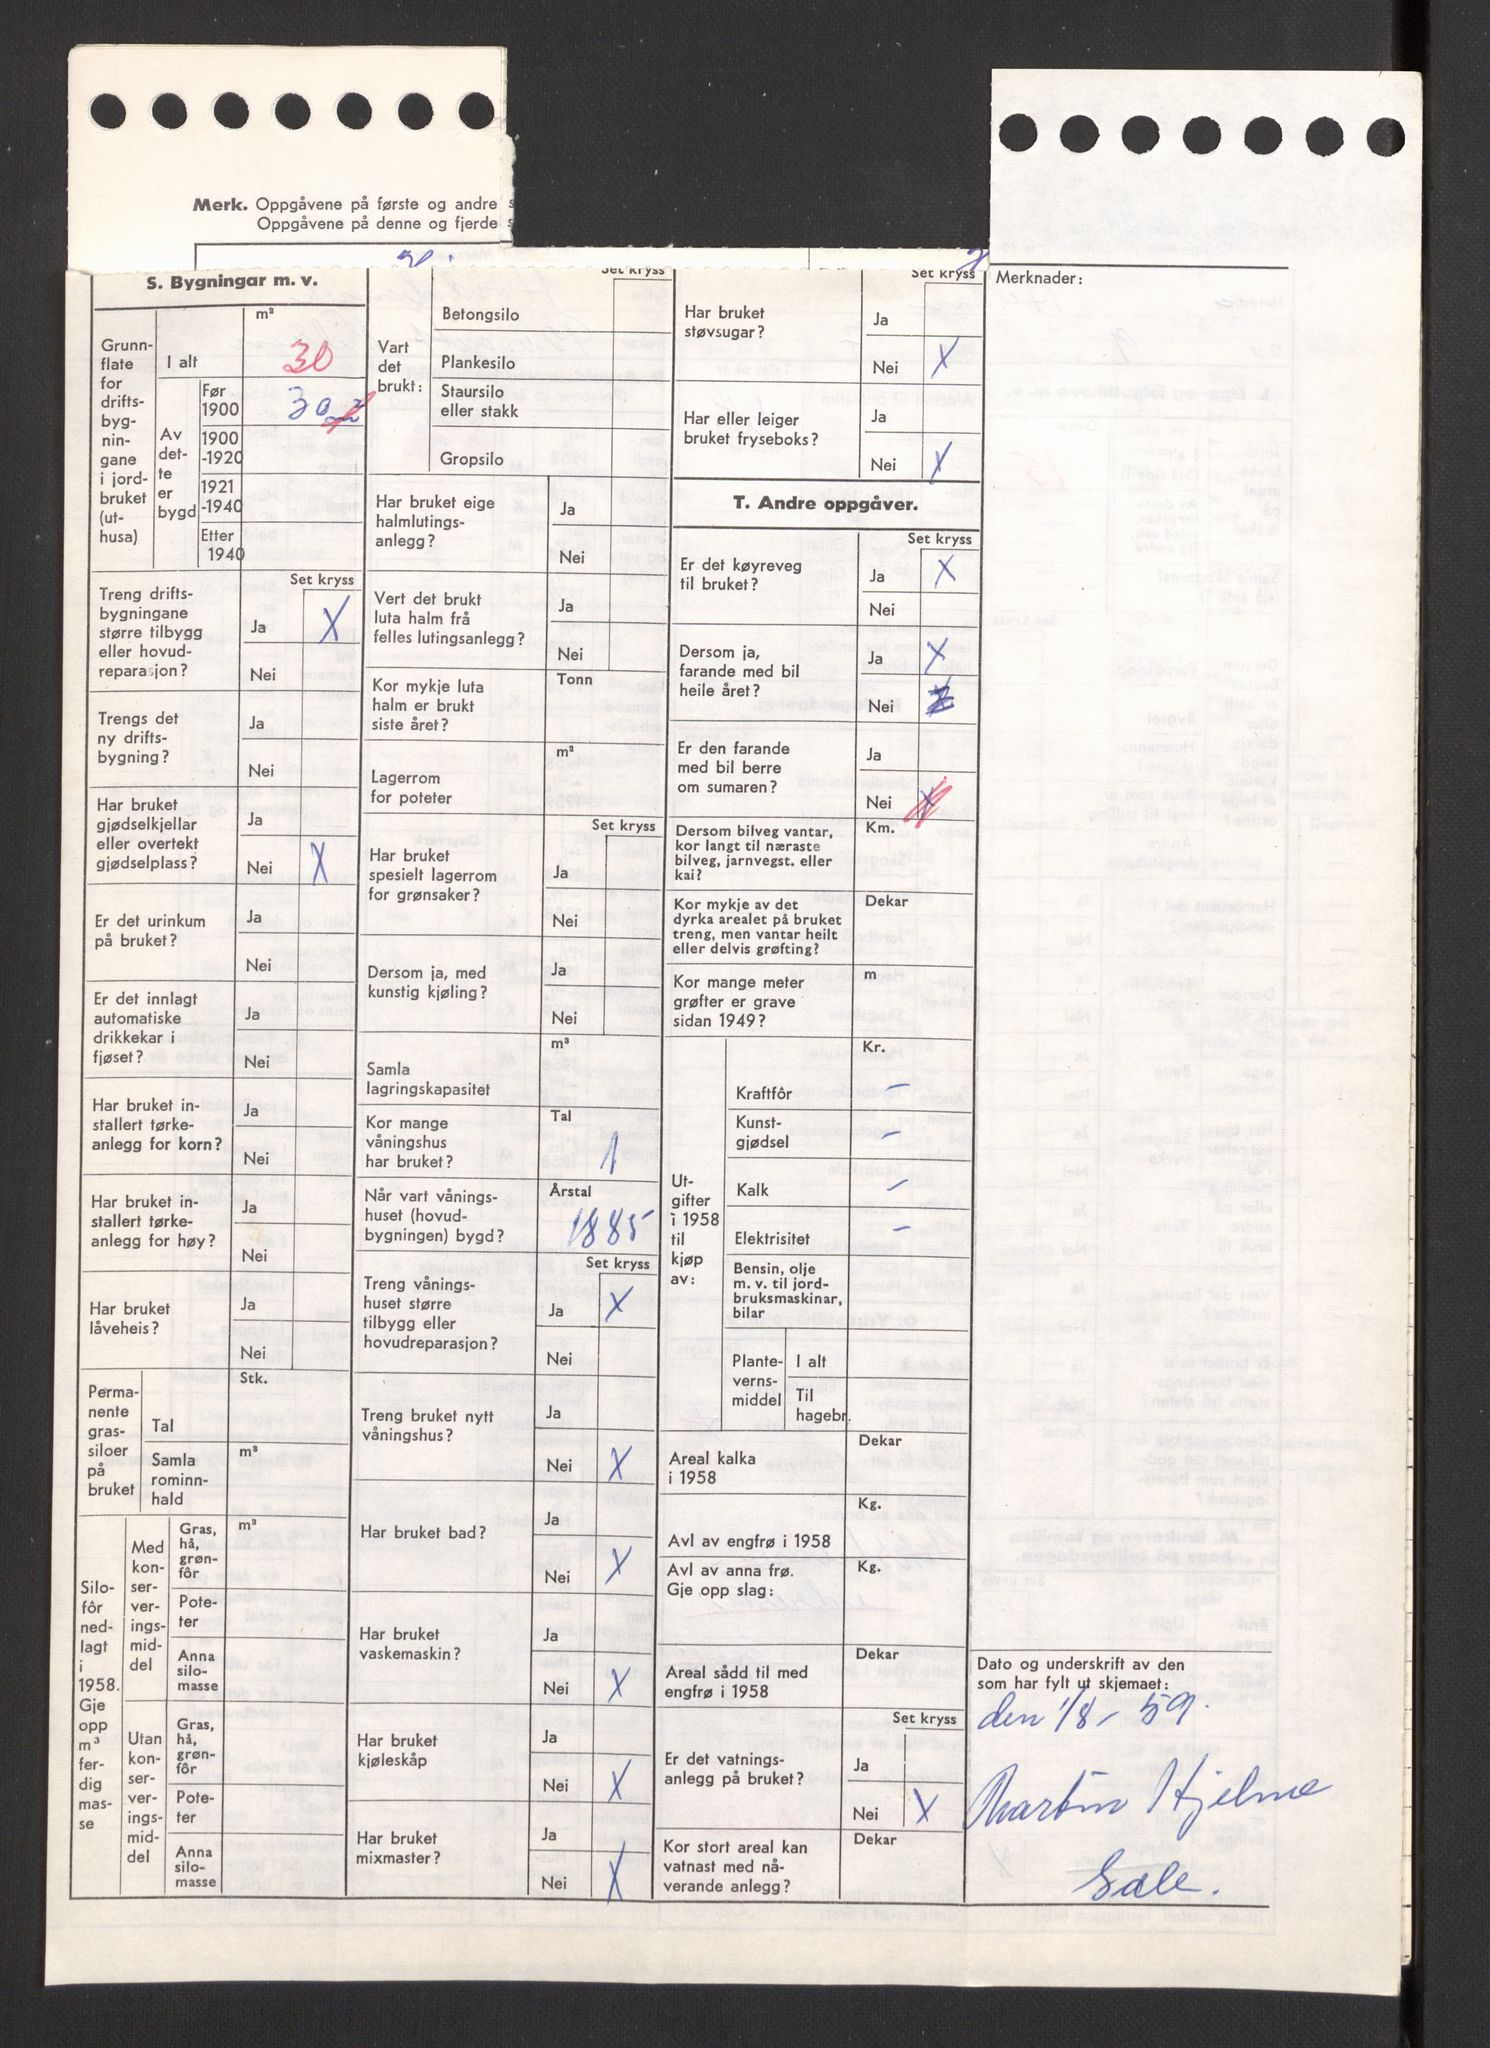 Merk. Oppgåvene på første og andre s
Oppgåvene på denne og fjerde s
S. Bygningar m. v.
m²
Grunn-
flate
for
drifts-
byg-
nin-
gane
i jord-
bruket
(ut-
husa)
I alt
30
Av
det-
te
er
bygd
Før
1900
30 m²
1900
-1920
1921
-1940
Etter
1940
Set kryss
Treng drifts-
bygningane
større tilbygg
eller hovud-
reparasjon?
Ja X
Nei
Trengs det
ny drifts-
bygning?
Ja
Nei
Har bruket
gjødselkjellar
eller overtekt
gjødselplass?
Ja
Nei X
Er det urinkum
på bruket?
Ja
Nei
Er det innlagt
automatiske
drikkekar i
fjøset?
Ja
Nei
Har bruket in-
stallert tørke-
anlegg for korn?
Ja
Nei
Har bruket in-
stallert tørke-
anlegg for høy?
Ja
Nei
Har bruket
låveheis?
Ja
Nei
Perma-
nente
gras-
siloer
på
bruket
Stk.
Tal
m³
Samla
rominn-
hald
Silo-
fôr
ned-
lagt
i
1958.
Gje
opp
m³
fer-
dig
mas-
se
Med
kon-
ser-
ver-
ings-
mid-
del
m³
Gras,
hå,
grøn-
fôr
Pote-
ter
Anna
silo-
masse
Utan
kon-
ser-
ver-
ings-
mid-
del
Gras,
hå,
grøn-
fôr
Pote-
ter
Anna
silo-
masse
Set kryss
Vart
det
brukt:
Betongsilo
Plankesilo
Staursilo
eller stakk
Gropsilo
Har bruket eige
halmlutings-
anlegg?
Ja
Nei
Vert det brukt
luta halm frå
felles lutingsanlegg?
Ja
Nei
Kor mykje luta
halm er brukt
siste året?
Tonn
Lagerrom
for poteter
m²
Set kryss
Har bruket
spesielt lagerrom
for grønsaker?
Ja
Nei
Dersom ja, med
kunstig kjøling?
Ja
Nei
Samla
lagringskapasitet
m³
Kor mange
våningshus
har bruket?
Tal
1
Når vart vånings-
huset (hovud-
bygningen) bygd?
Årstal
1885
Set kryss
Treng vånings-
huset større
tilbygg eller
hovudreparasjon?
Ja X
Nei
Treng bruket nytt
våningshus?
Ja
Nei X
Har bruket bad?
Ja
Nei X
Har bruket
vaskemaskin?
Ja
Nei X
Har bruket
kjøleskåp
Ja
Nei X
Har bruket
mixmaster?
Ja
Nei X
Set kryss
Har bruket
støvsugar?
Ja
Nei X
Har eller leiger
bruket fryseboks?
Ja
Nei X
T. Andre oppgåver.
Set kryss
Er det køyreveg
til bruket?
Ja X
Nei
Dersom ja,
farande med bil
heile året?
Ja X
Nei X
Er den farande
med bil berre
om sumaren?
Ja
Nei X
Dersom bilveg vantar,
kor langt til næraste
bilveg, jarnvegst. eller
kai?
Km.
Kor mykje av det
dyrka arealet på bruket
treng, men vantar heilt
eller delvis grøfting?
Dekar
Kor mange meter
grøfter er grave
sidan 1949?
m
Ut-
gifter
i 1958
til
kjøp
av:
Kr.
Kraftfôr –
Kunst-
gjødsel –
Kalk –
Elektrisitet –
Bensin, olje
m. v. til jord-
bruksmaskinar,
bilar
Plante-
verns-
middel
I alt
Til
hagebr.
Areal kalka
i 1958
Dekar
Avl av engfrø i 1958
Kg.
Avl av anna frø.
Gje opp slag:
Kg.
Areal sådd til med
engfrø i 1958
Dekar
Set kryss
Er det vatnings-
anlegg på bruket?
Ja
Nei X
Kor stort areal kan
vatnast med nå-
verande anlegg?
Dekar
Merknader:
Dato og underskrift av den
som har fylt ut skjemaet:
den 1/8 – 59.
Martin Hjelme